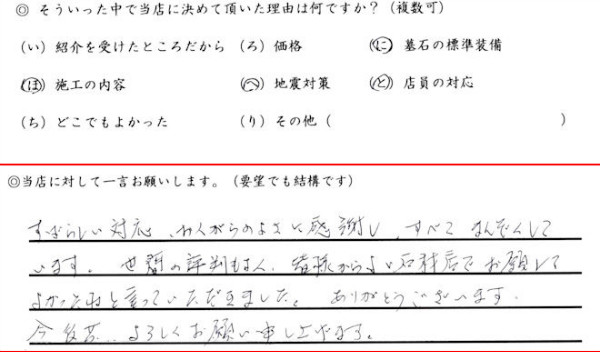 ◎ そういった中で当店に決めて頂いた理由は何ですか？（複数可）
（い）紹介を受けたところだから（ろ）価格　（に）墓石の標準装備
（ほ）施工の内容　（へ）地震対策　（と）店員の対応
（ち）どこでもよかった　（り）その他（　）
◎当店に対して一言お願いします。（要望でも結構です）
すばらしい対応、わくがらのよさに感謝し、すべて まんぞくして
います。世間の評判も 皆様からよい石材店でお願いして
よかったねと言っていただきました。ありがとうございます。
今後共 よろしくお願い申し上げます。